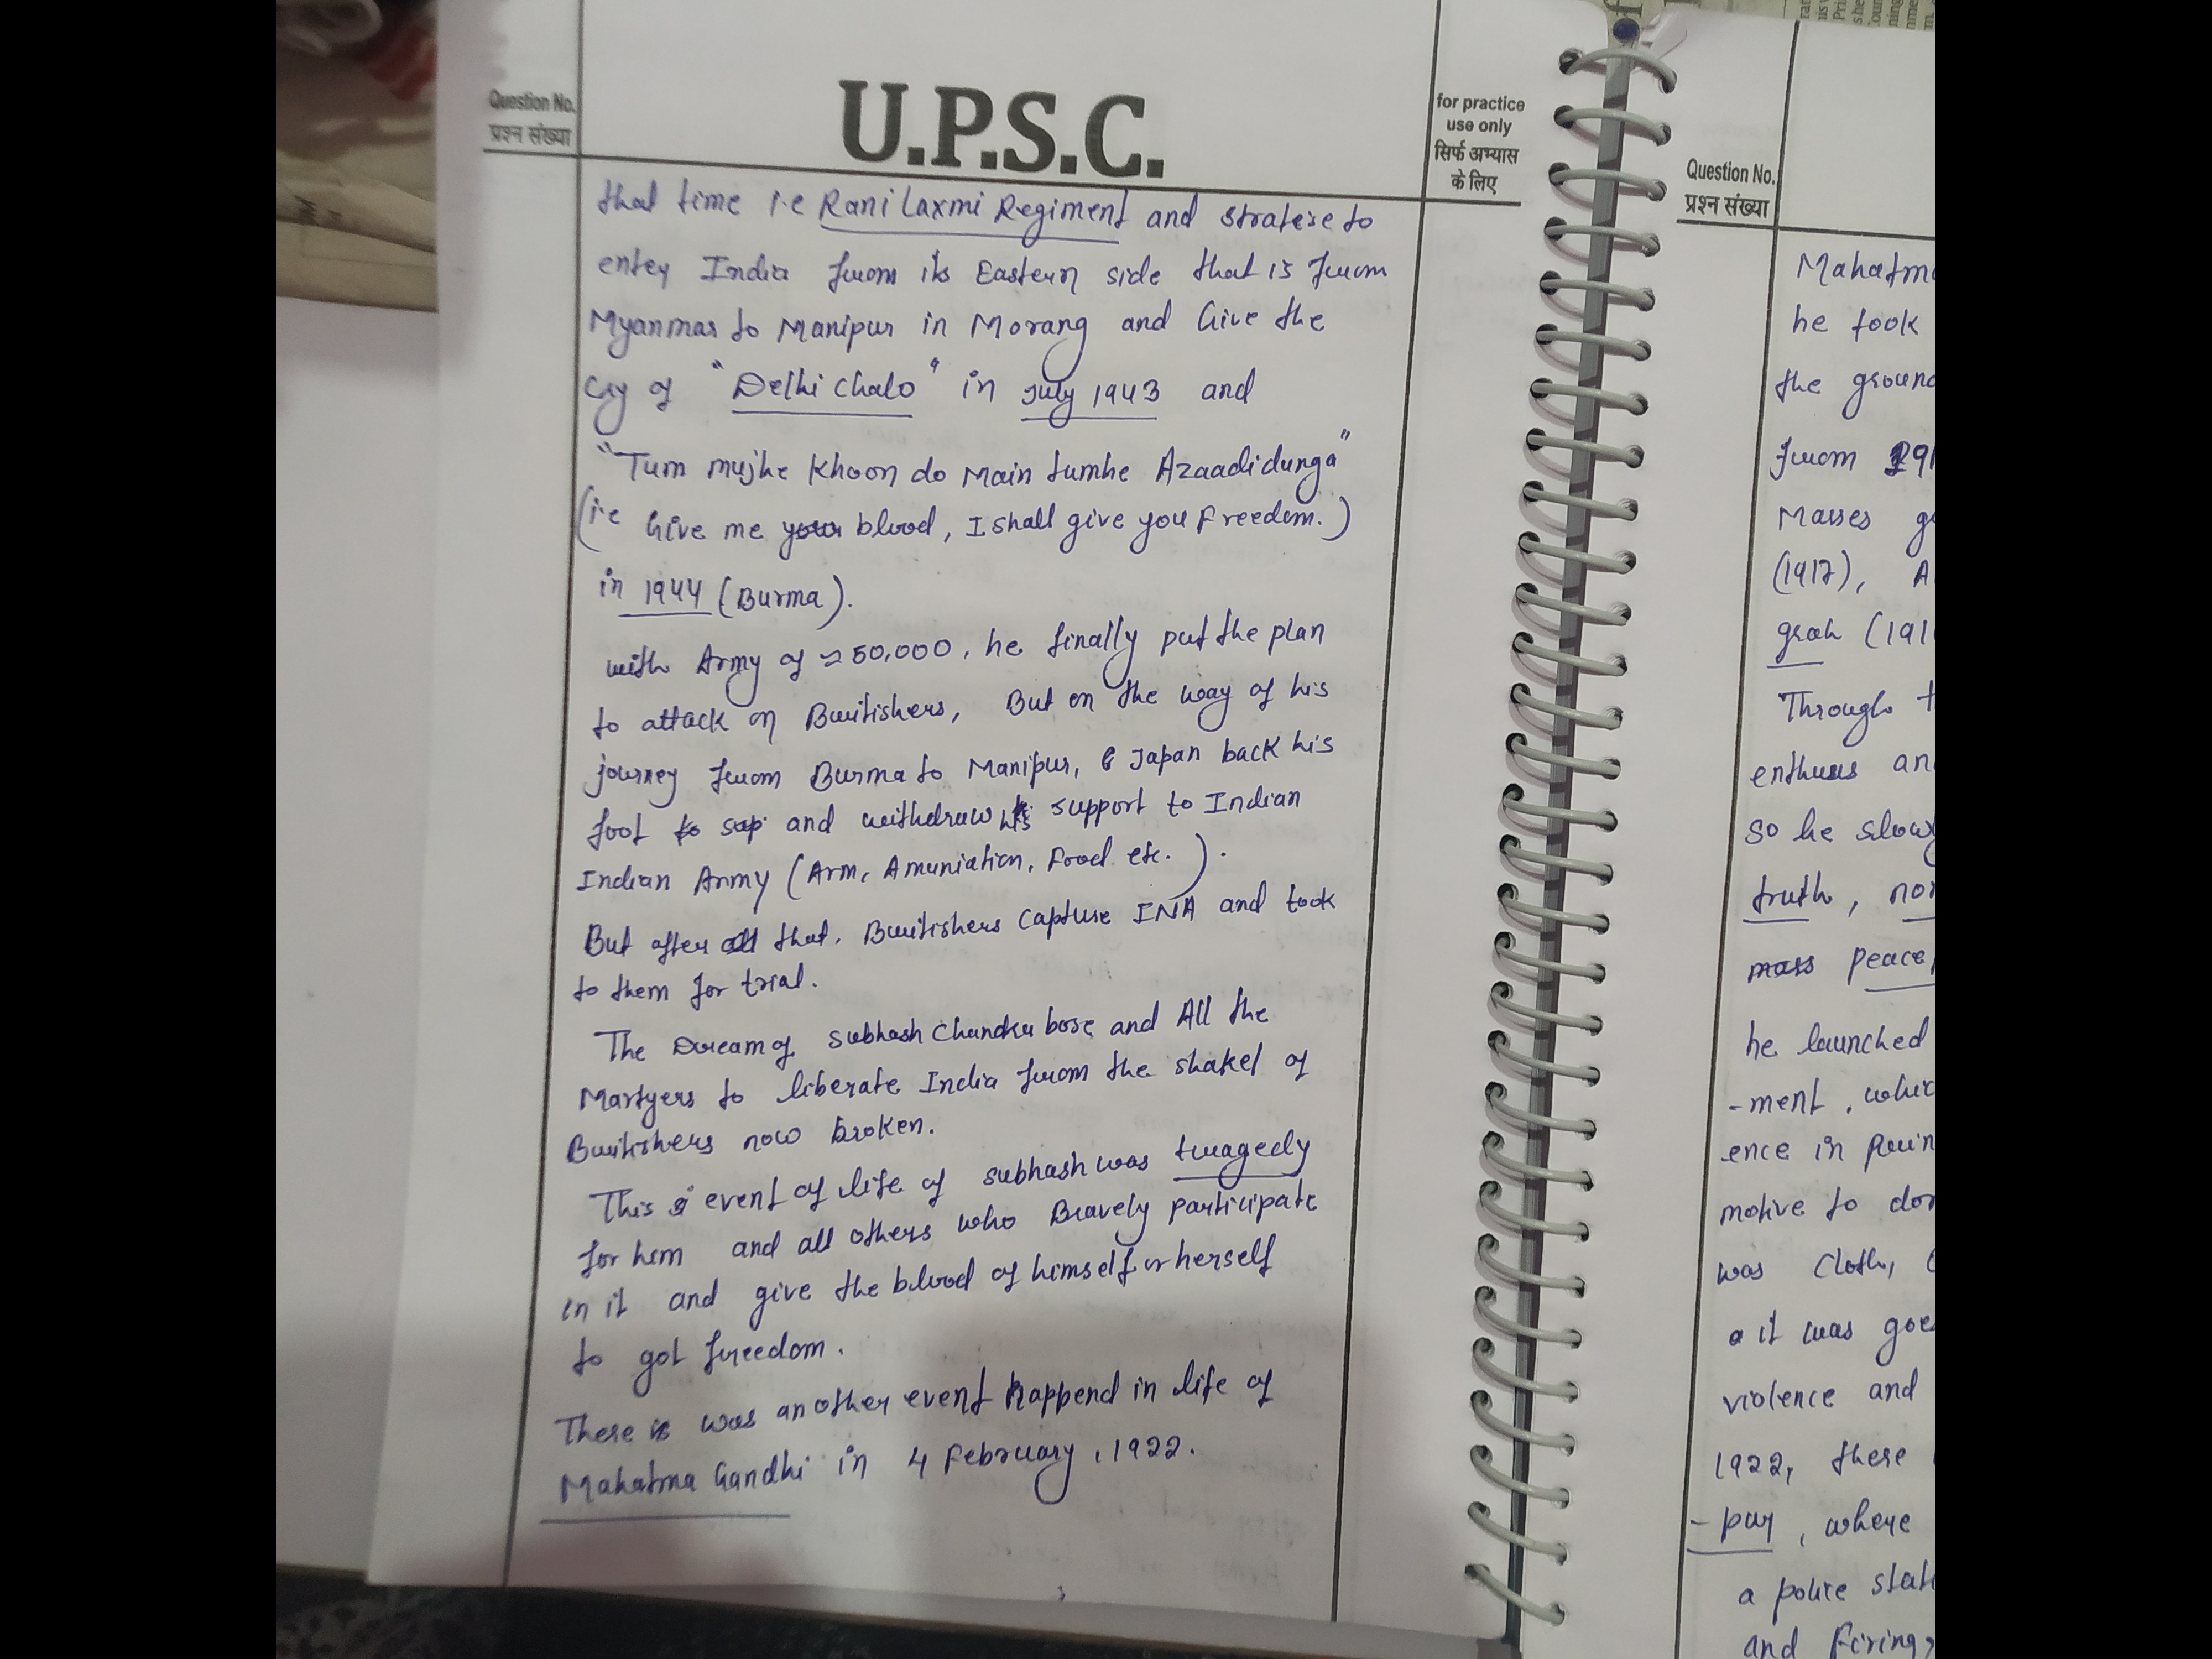 Question No.
प्रश्न संख्या
U.P.S.C.
for practice
use only
सिर्फ अभ्यास
के लिए
that time i.e Rani Laxmi Regiment and strateie to
entey India from its Eastern side that is from
Myanmar to Manipur in Morang and Give the
Cry of "Delhi Chalo" in July 1943 and
"Tum mujhe Khoon do Main tumhe Azaadi dunga"
(i.e Give me your blood, I shall give you Freedom.)
in 1944 (Burma).
with Army of ≈ 50,000, he finally put the plan
to attack on Britishers, But on the way of his
journey from Burma to Manipur, Japan back his
foot and withdraw his support to Indian
Indian Army (Arm, Amuniation, Food etc.).
But after all that, Britishers Capture INA and took
to them for trial.
The Dream of Subhash Chandra bose and All the
Martyers to liberate India from the shakel of
Britishers now broken.
This event of life of subhash was tragedy
for him and all others who Bravely participate
in it and give the blood of himself or herself
to got freedom.
There was another event happend in life of
Mahatma Gandhi in 4 February, 1922.
Question No.
प्रश्न संख्या
Mahatm
he took
the groun
from 191
Masses g
(1917), A
grah (191
Through t
enthuus an
so he slow
truth, no
mass peace,
he launched
-ment, whic
ence in prin
motive to do
was Cloth,
it was goe
violence and
1922, there
-pur, where
a police stat
and firing,